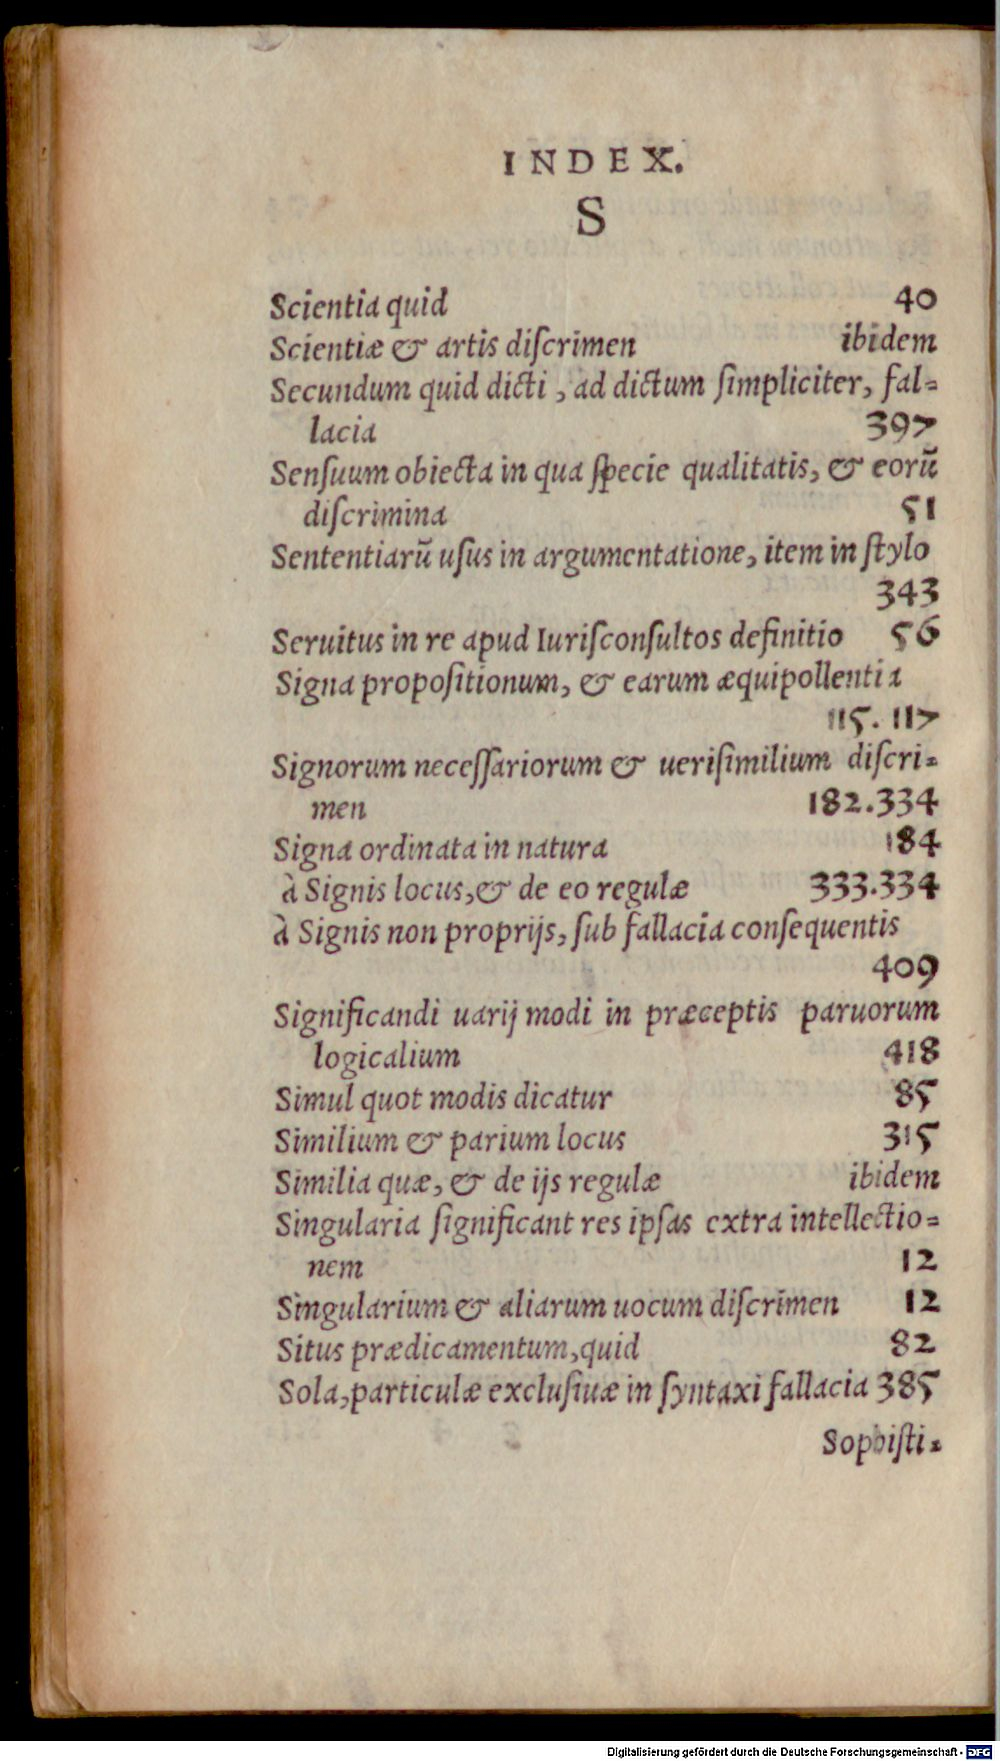 INDEX.
S
Scientia quid 40
Scientiæ & artis diſcrimen ibidem
Secundum quid dicti, ad dictum ſimpliciter, fal=
lacia 397
Senſuum obiecta in qua ſpecie qualitatis, & eorũ
diſcrimina 51
Sententiarũ uſus in argumentatione, item in ſtylo
343
Seruitus in re apud Iuriſconſultos definitio 56
Signa propoſitionum, & earum æquipollentia
115. 117
Signorum neceſſariorum & ueriſimilium diſcri=
men 182.334
Signa ordinata in natura 184
à Signis locus, & de eo regulæ 333.334
à Signis non proprijs, ſub fallacia conſequentis
409
Significandi uarij modi in præceptis paruorum
logicalium 418
Simul quot modis dicatur 85
Similium & parium locus 315
Similia quæ, & de ijs regulæ ibidem
Singularia ſignificant res ipſas extra intellectio=
nem 12
Singularium & aliarum uocum diſcrimen 12
Situs prædicamentum, quid 82
Sola, particulæ excluſiuæ in ſyntaxi fallacia 385
Sophiſti=
Digitalisierung gefördert durch die Deutsche Forschungsgemeinschaft - DFG